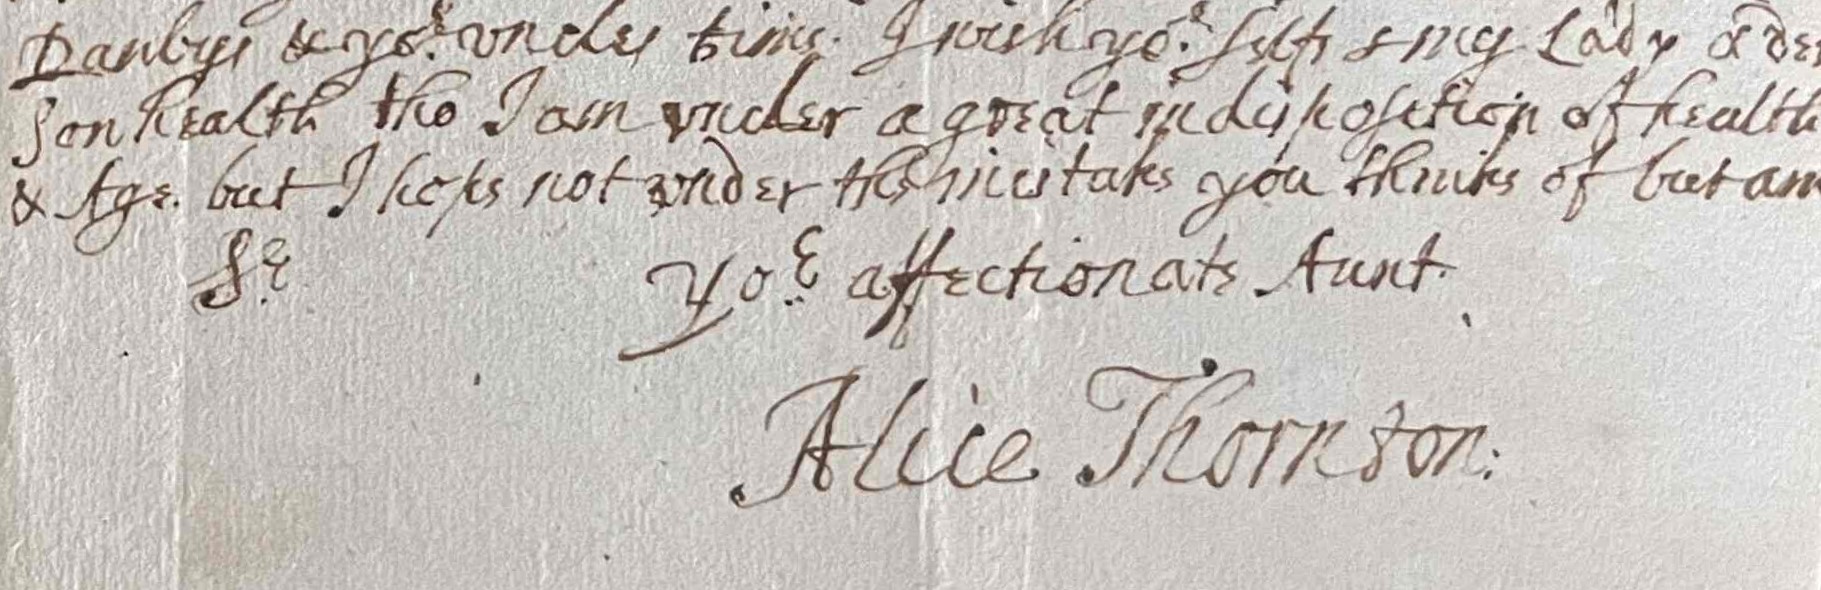 Danbys & yor. vncles time. I wish yor. selfe & my Lady &
son health tho I am vnder a great indisposition of health
& Age. but I hope not vnder the mistake you thinke of but am
Sr. Yor. affectionate Aunt.
Alice Thornton: